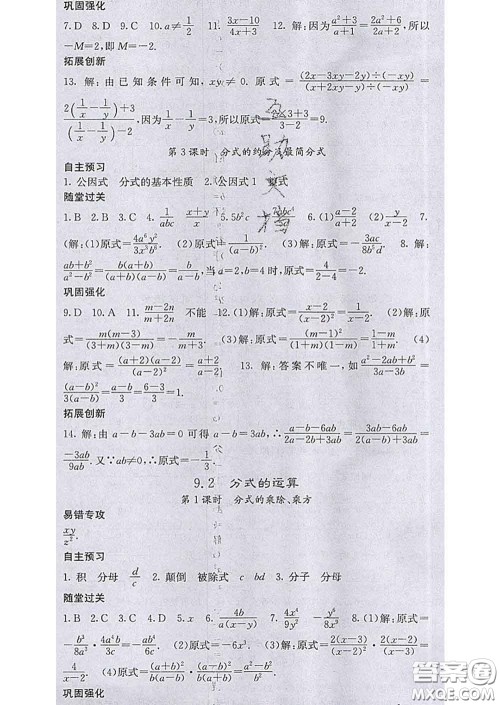 巩固强化
7. D 8. D 9. C 10. a≠-1/2 11. (3x-10)/(4x+3) 12. 解:因为(a²+3)/(a+1)=(2a²+6)/(2a+2),所以
-M=2,即M=-2.
拓展创新
13. 解:由已知条件可知,xy≠0. 原式=((2x-3xy-2y)÷(-xy))/((x+2xy-y)÷(-xy))=
(2(1/x-1/y)+3)/((1/x-1/y)-2),因为1/x-1/y=3,所以原式=(2×3+3)/(3-2)=9.
第3课时 分式的约分及最简分式
自主预习
1. 公因式 分式的基本性质 2. 公因式 1 整式
随堂过关
1. B 2. B 3. C 4. 1/abc (x+y)/x 5. 6. (1)(a-2)/(a+2) (2)y/(x-2) 7.
(解:(1)原式=4a⁶y²/3x³b⁸. (2)原式=-3ac/8b⁵d. 8. 解:
(ab+b²)/(a²-b²)=b(a+b)/((a+b)(a-b))=b/(a-b),当a=2,b=4时,原式=4/(2-4)=-2.
巩固强化
9. D 10. A 11. (m-2n)/(m+2n) 不能 12. (解:(1)原式=(x-2)/(x-2)²=1/(x-2). (2)解:原
式=m(m-3)/((3+m)(3-m))=-m/(3+m). (3)解:原式=(1-m)²/((1+m)(1-m))=(1-m)/(1+m). (4)
解:原式=(a+2)(a-2)/((a-2)(a-2))=(a+2)/(a-2). 13. 解:答案不唯一,如(a²-2ab+b²)/(3a-3b)=
(a-b)²/3(a-b)=(a-b)/3=(6-3)/3=1.
拓展创新
14. 解:由a-b-3ab=0可得a-b=3ab,∴(a-b-6ab)/(2a-2b+3ab)=(3ab-6ab)/(2×3ab+3ab)=
-3ab/9ab. 又∵ab≠0,∴原式=-1/3.
9.2 分式的运算
第1课时 分式的乘除、乘方
易错专攻
xy/z².
自主预习
1. 积 分母 d/c 2. 颠倒 被除式 c bd 3. 分子 分母
随堂过关
1. B 2. C 3. D 4. D 5. x 6. 4b/a(x-y) 7. 4x⁴/9y² -y⁶/8x³ 8. 解:(1)原式=
-b³/8a³·4a²/3c=-ab³/6ac. (2)原式=-6x³. (3)原式=2(x-3)/(x-2)²·2(x-2)/(x-3)=
4/(x-2). (4)原式=(a+b)²/(a-b)²·(a-b)/(a+b)²·(a-b)²/(a+b)=(a-b)/(a+b).
巩固强化
答案圈
MXQE.COM